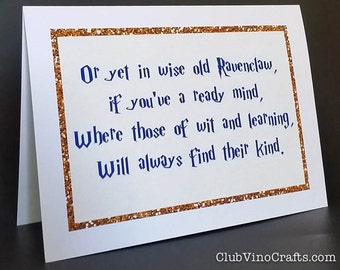 Or yet in wise old Ravenclaw,
if you've a ready mind,
Where those of wit and learning,
Will always find their kind.
ClubVinoCrafts.com